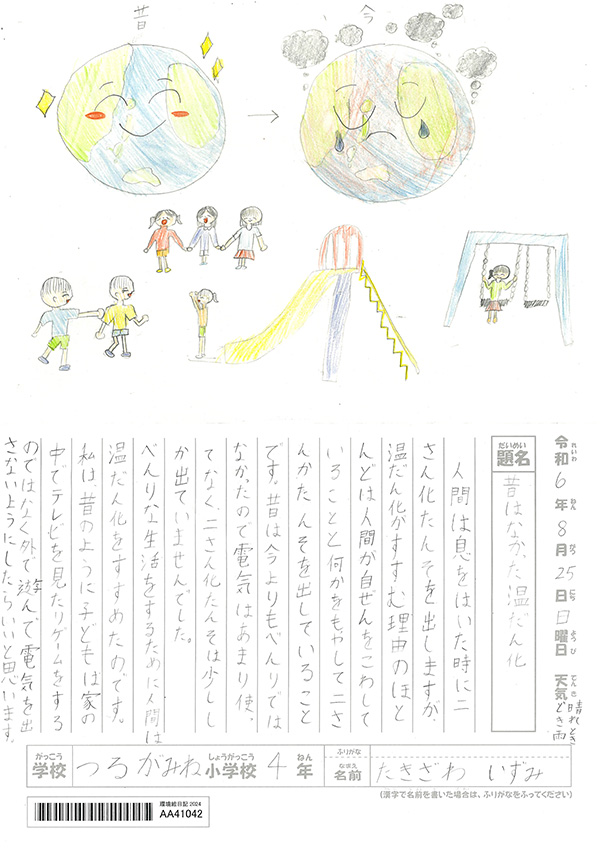 昔
今
令和6年8月25日日曜日 天気 晴れときどき雨
れいわ ねん がつ にち ようび てんき
だいめい
題名 昔はなかった温だん化
人間は息をはいた時に二
さん化たんそを出しますが、
温だん化がすすむ理由のほと
んどは人間が自ぜんをこわして
いることと何かをもやして二さ
んかたんそを出していること
です。昔は今よりもべんりでは
なかったので電気はあまり使っ
てなく、二さん化たんそは少し
か出ていませんでした。
べんりな生活をするために人間は
温だん化をすすめたのです。
私は昔のように子どもは家の
中でテレビを見たりゲームをする
のではなく外で遊んで電気を出
さないようにしたらいいと思います。
がっこう しょうがっこう ねん
学校 つるがみね小学校 4年
ふりがな
なまえ
名前 たきざわ いずみ
(漢字で名前を書いた場合は、ふりがなをふってください)
環境絵日記 2024
AA41042